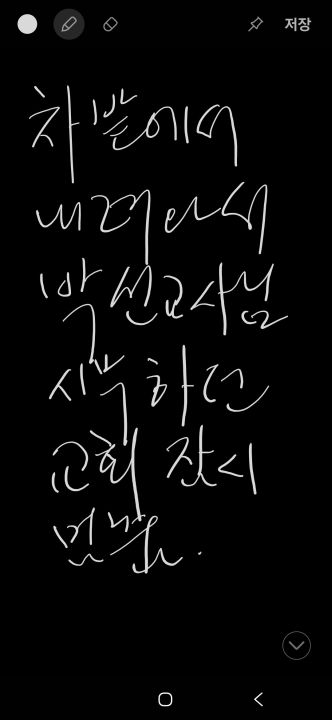 저장
차밭에서
내려와서
박선교사님
시무하던
교회 잠시